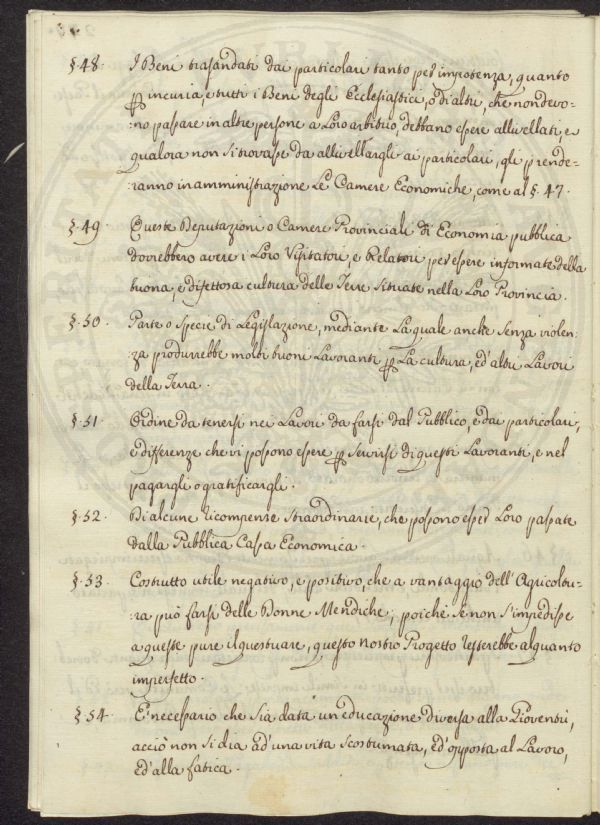 §. 48. I Beni trasandati dai particolari tanto per impotenza, quanto
p incuria, e tutti i Beni degli Ecclesiastici, o di altri, che non devo-
:no passare in altre persone a Loro arbitrio, debbano essere allivellati, e
qualora non si trovasse da allivellargli ai particolari, gli prende-
:ranno in amministrazione Le Camere Economiche, come al §. 47.
§. 49. Queste Deputazioni o Camere Provinciali di Economia pubblica
dovrebbero avere i Loro Visitatori, e Relatori per essere informate della
buona, e difettosa cultura delle Terre situate nella Loro Provincia.
§. 50. Parte o specie di Legislazione, mediante La quale anche senza violen-
:za produrrebbe molti buoni Lavoranti p La cultura, ed' altri Lavori
della Terra.
§. 51. Ordine da tenersi nei Lavori da farsi dal Pubblico, e dai particolari,
e differenze che vi possono essere p servirsi di questi Lavoranti, e nel
pagargli o gratificargli.
§. 52. Di alcune ricompense straordinarie, che possono esser Loro passate
dalla Pubblica Cassa Economica.
§. 53. Costrutto utile negativo, e positivo, che a vantaggio dell'Agricoltu-
:ra può farsi delle Donne Mendiche; poichè se non s'impedisse
a queste pure il questuare, questo nostro Progetto resterebbe alquanto
imperfetto.
§. 54. E' necessario che sia data un'educazione diversa alla Gioventù,
acciò non si dia ad' una vita scostumata, ed' opposta al Lavoro,
ed' alla fatica.